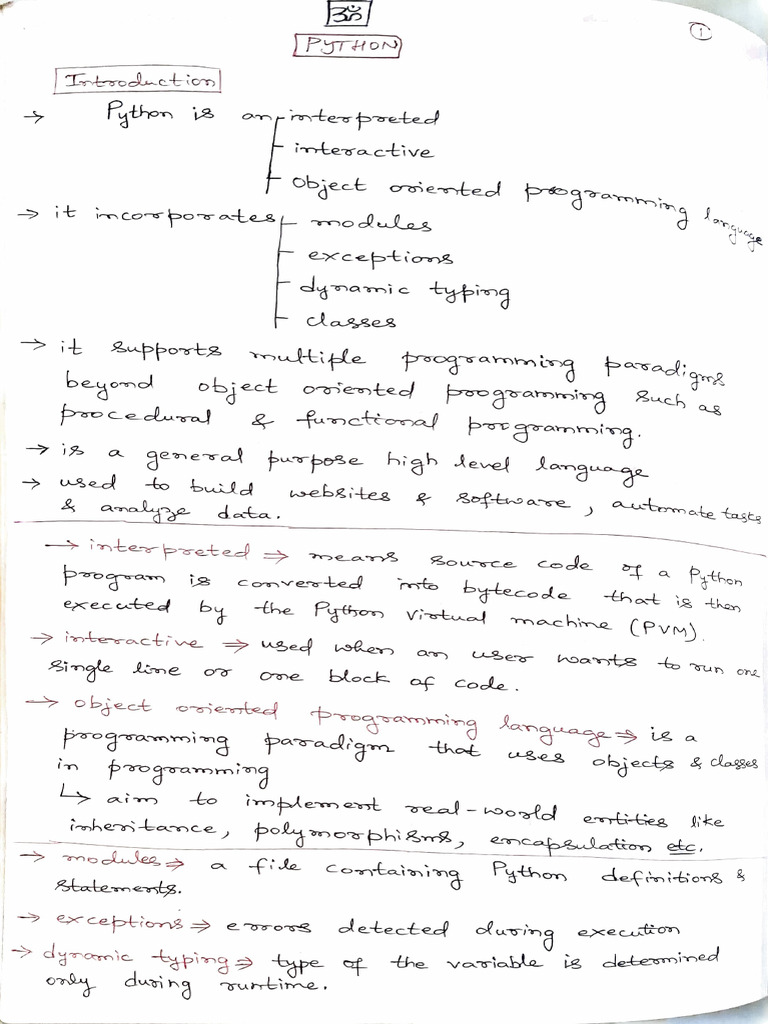 ॐ
①
PYTHON
Introduction
→ Python is an interpreted
interactive
object oriented programming language
→ it incorporates modules
exceptions
dynamic typing
classes
→ it supports multiple programming paradigms
beyond object oriented programming such as
procedural & functional programming.
→ is a general purpose high level language
→ used to build websites & software, automate tasks
& analyze data.
→ interpreted ⇒ means source code of a Python
program is converted into bytecode that is then
executed by the Python virtual machine (PVM).
→ interactive ⇒ used when an user wants to run one
single line or one block of code.
→ object oriented programming language ⇒ is a
programming paradigm that uses objects & classes
in programming
↳ aim to implement real-world entities like
inheritance, polymorphisms, encapsulation etc.
→ modules ⇒ a file containing Python definitions &
statements.
→ exceptions ⇒ errors detected during execution
→ dynamic typing ⇒ type of the variable is determined
only during runtime.